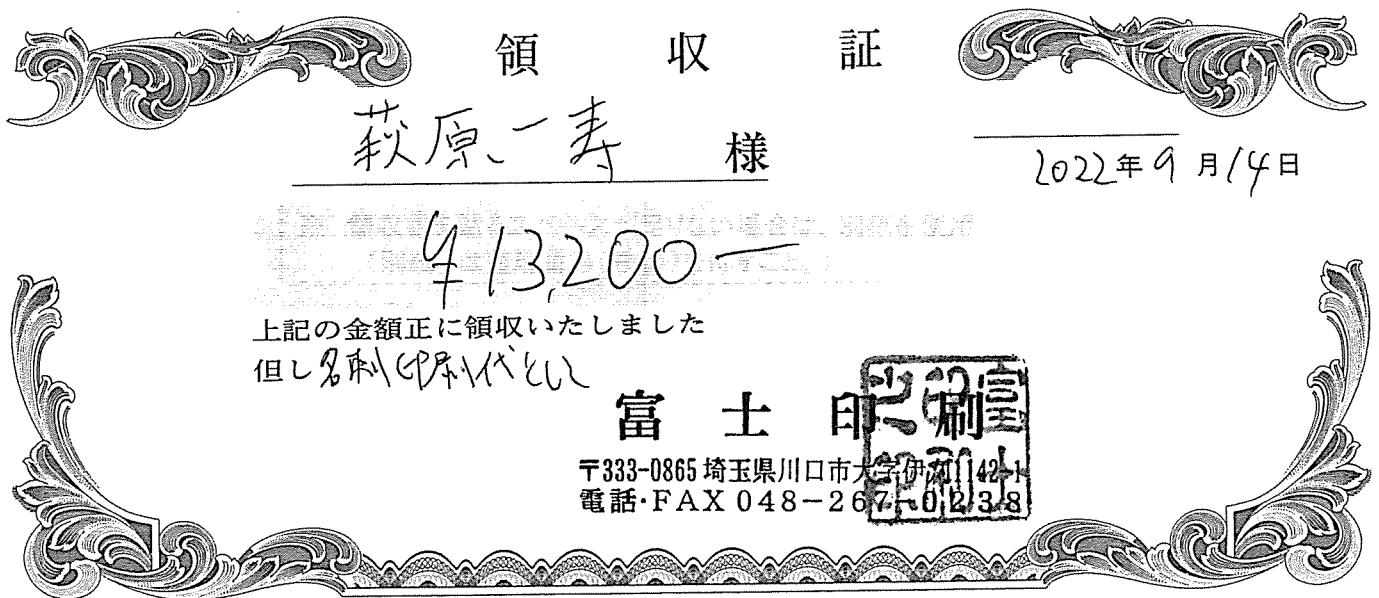 領収証
萩原一寿 様
2022年9月14日
¥13,200-
上記の金額正に領収いたしました
但し名刺印刷代として
富士印刷
〒333-0865 埼玉県川口市大字伊刈142-1
電話・FAX 048-267-0238
富士印刷之印